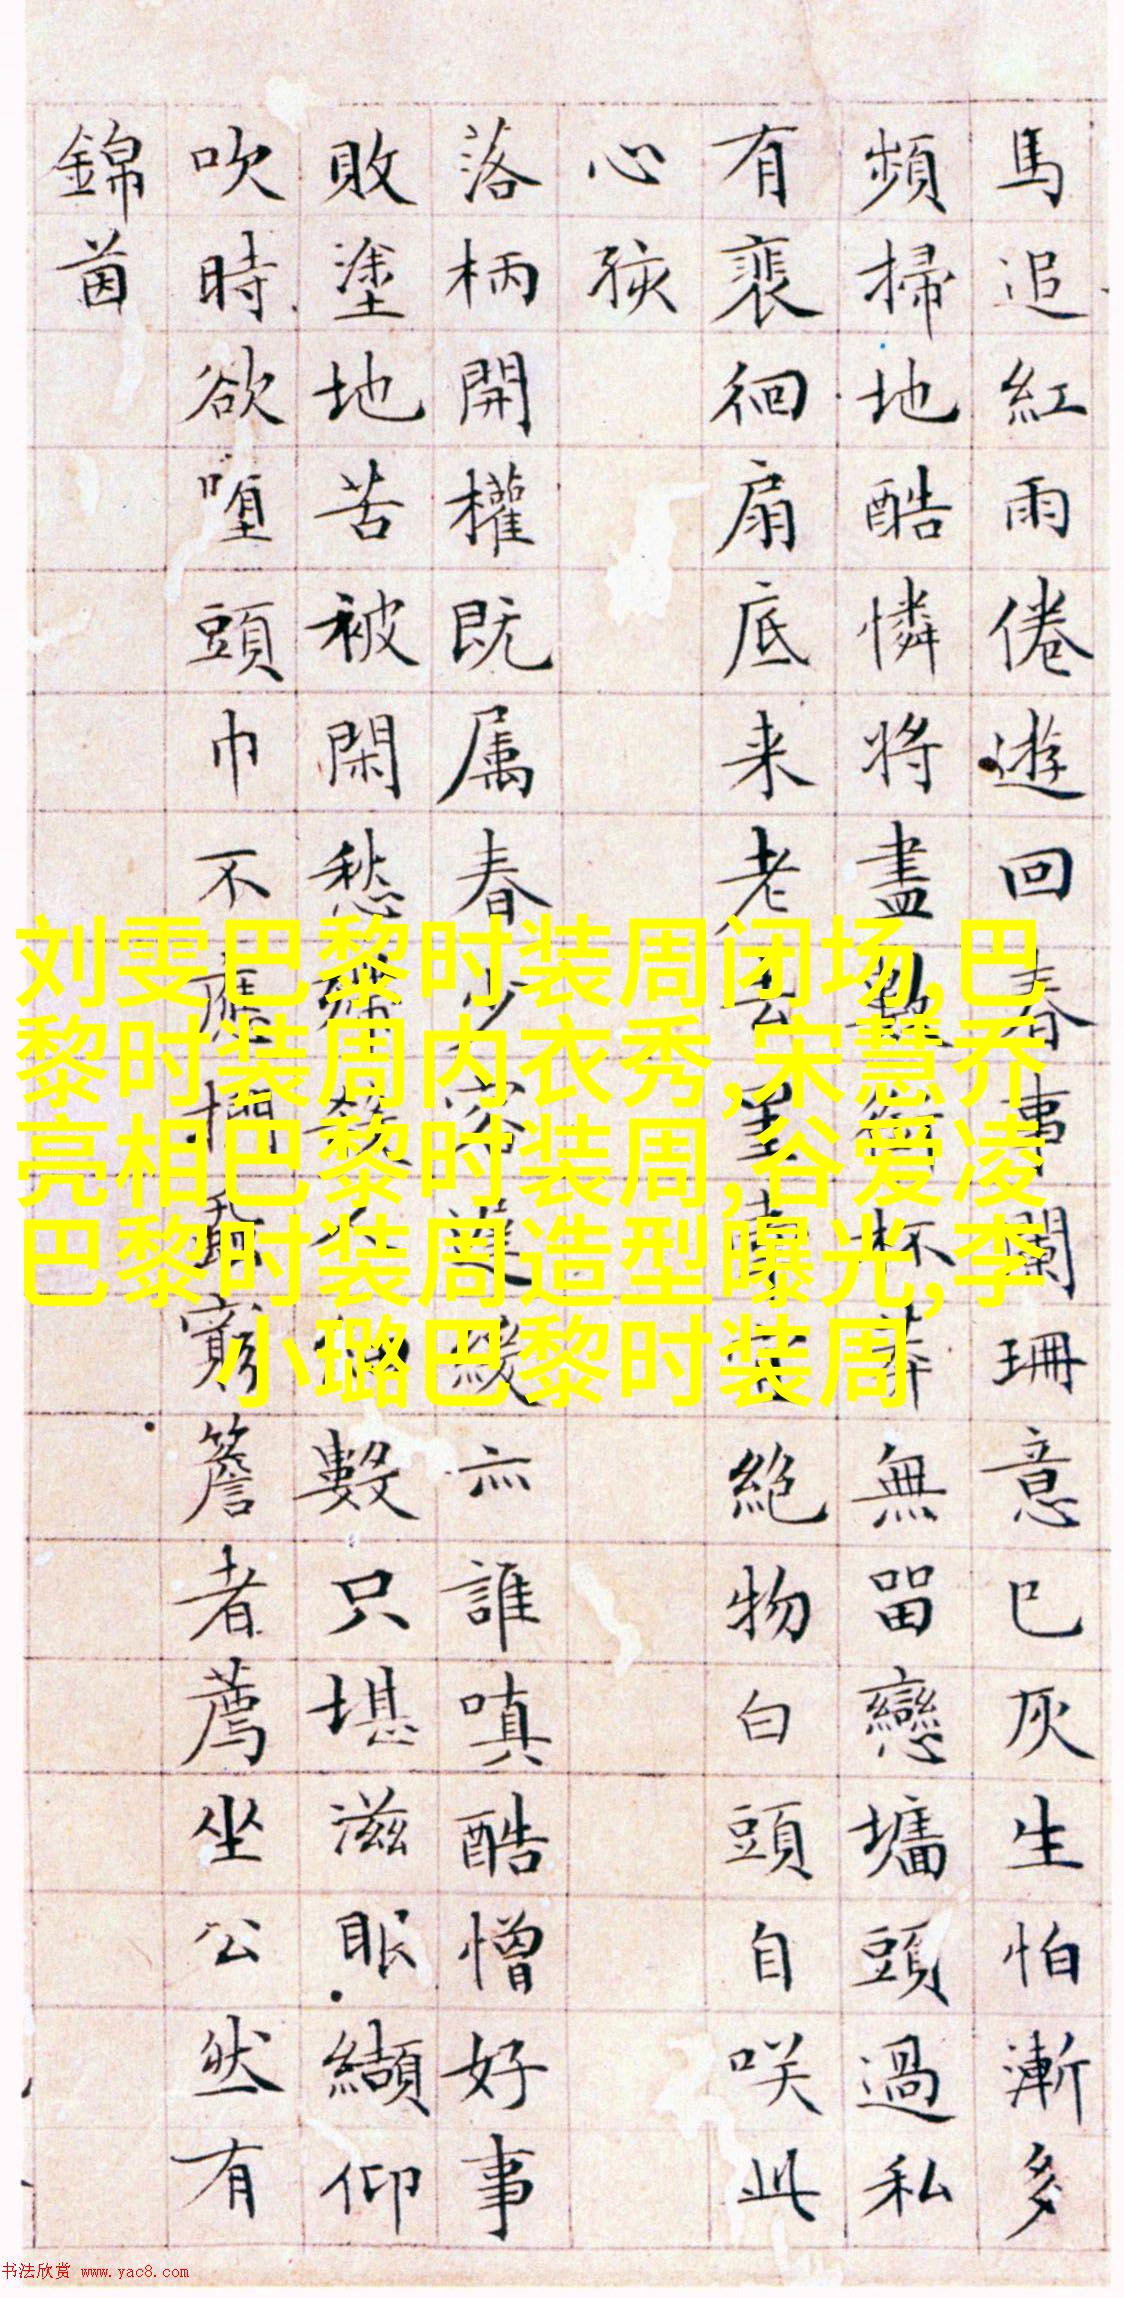 馬追紅雨倦遊回春事闌珊意已灰生怕漸多
頻掃地酷憐將盡杯莽無留戀墻頭過私
有裵徊扇底来老去罣絶物白頭自咲此
心孩
落柄開權既属春少容遲緩亦誰嗔酷憎好事
敗塗地苦被閑愁殢殺人數只堪滋眼纈仰
吹時欲堕頭巾不應捫虱窮簷者薦坐公然有
錦茵
刘雯巴黎时装周闭场,巴
黎时装周内衣秀,宋慧乔
亮相巴黎时装周,谷爱凌
巴黎时装周造型曝光,李
小璐巴黎时装周
书法欣赏 www.yac8.com